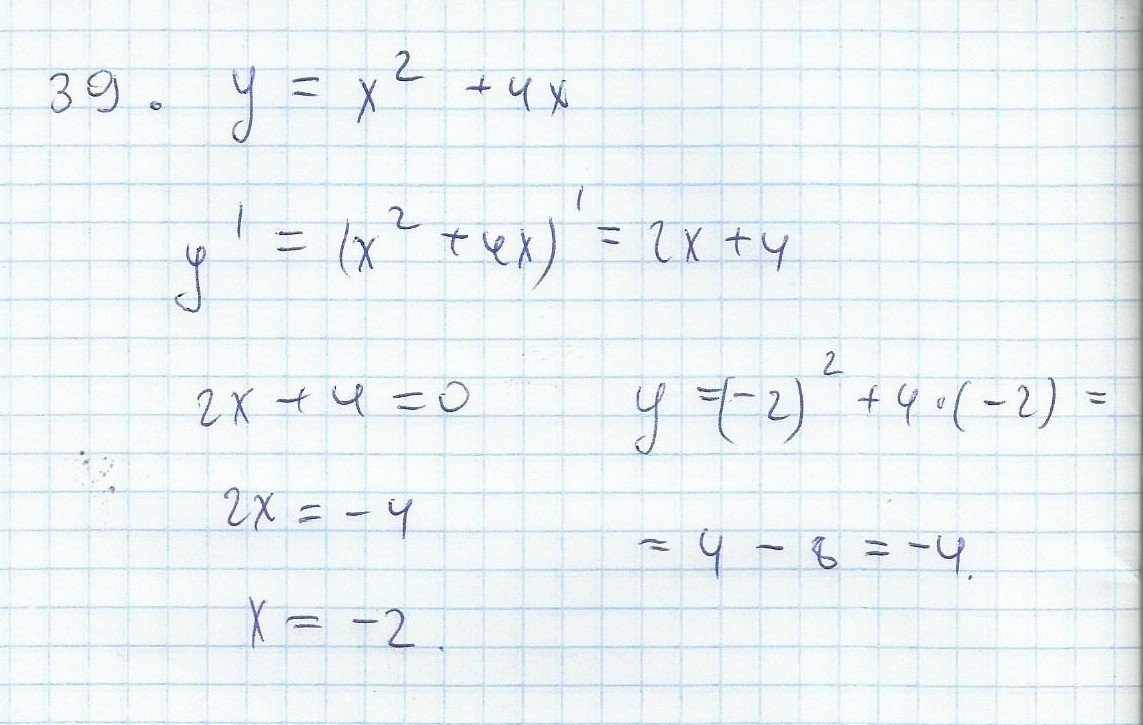 39. y = x² + 4x
y' = (x² + 4x)' = 2x + 4
2x + 4 = 0
2x = -4
x = -2.
y = (-2)² + 4·(-2) =
= 4 - 8 = -4.